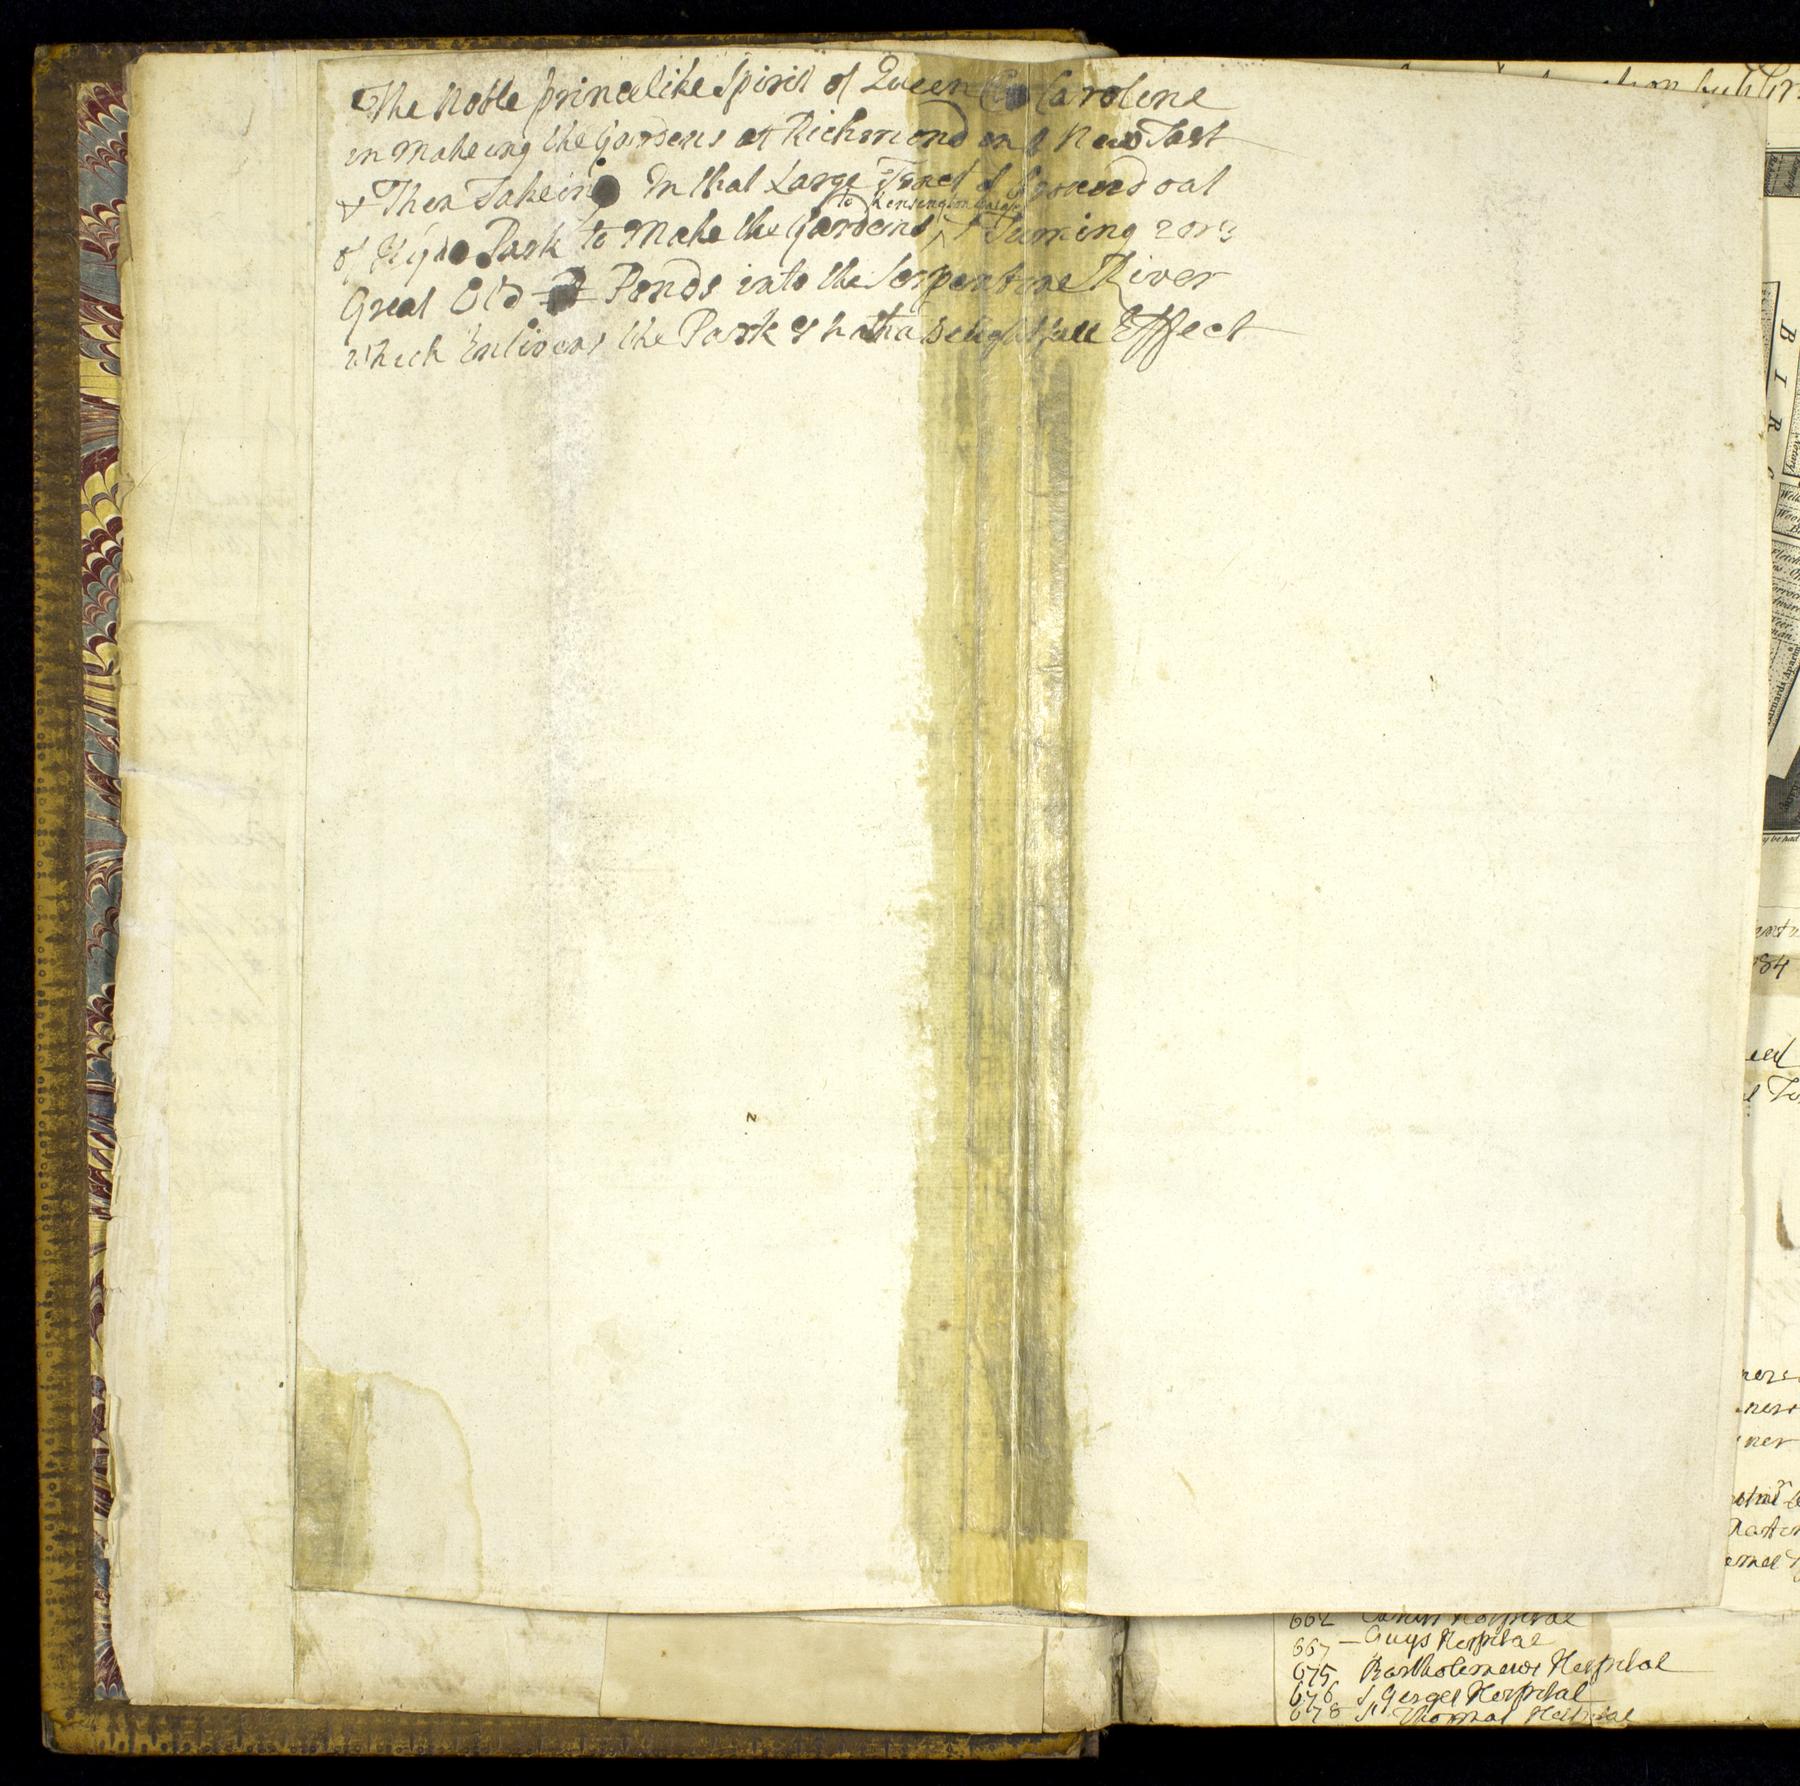 The Noble princelike Spirit of Queen Caroline
in Makeing the Gardens at Richmond in a New Tast
& Then Takeing In that Large Tract of Ground out
to Kensington Palace
of Hyde Park to Make the Gardens ^ & Turning 2 or 3
Great Old Ponds into the Serpentine River
which Enlivens the Park & hath a Delightfull Effect
B I R C
84
662 Hospital
667 – Guys Hospital
675 Bartholemews Hospital
676 St Gerges Hospital
678 St Thomas Hospital